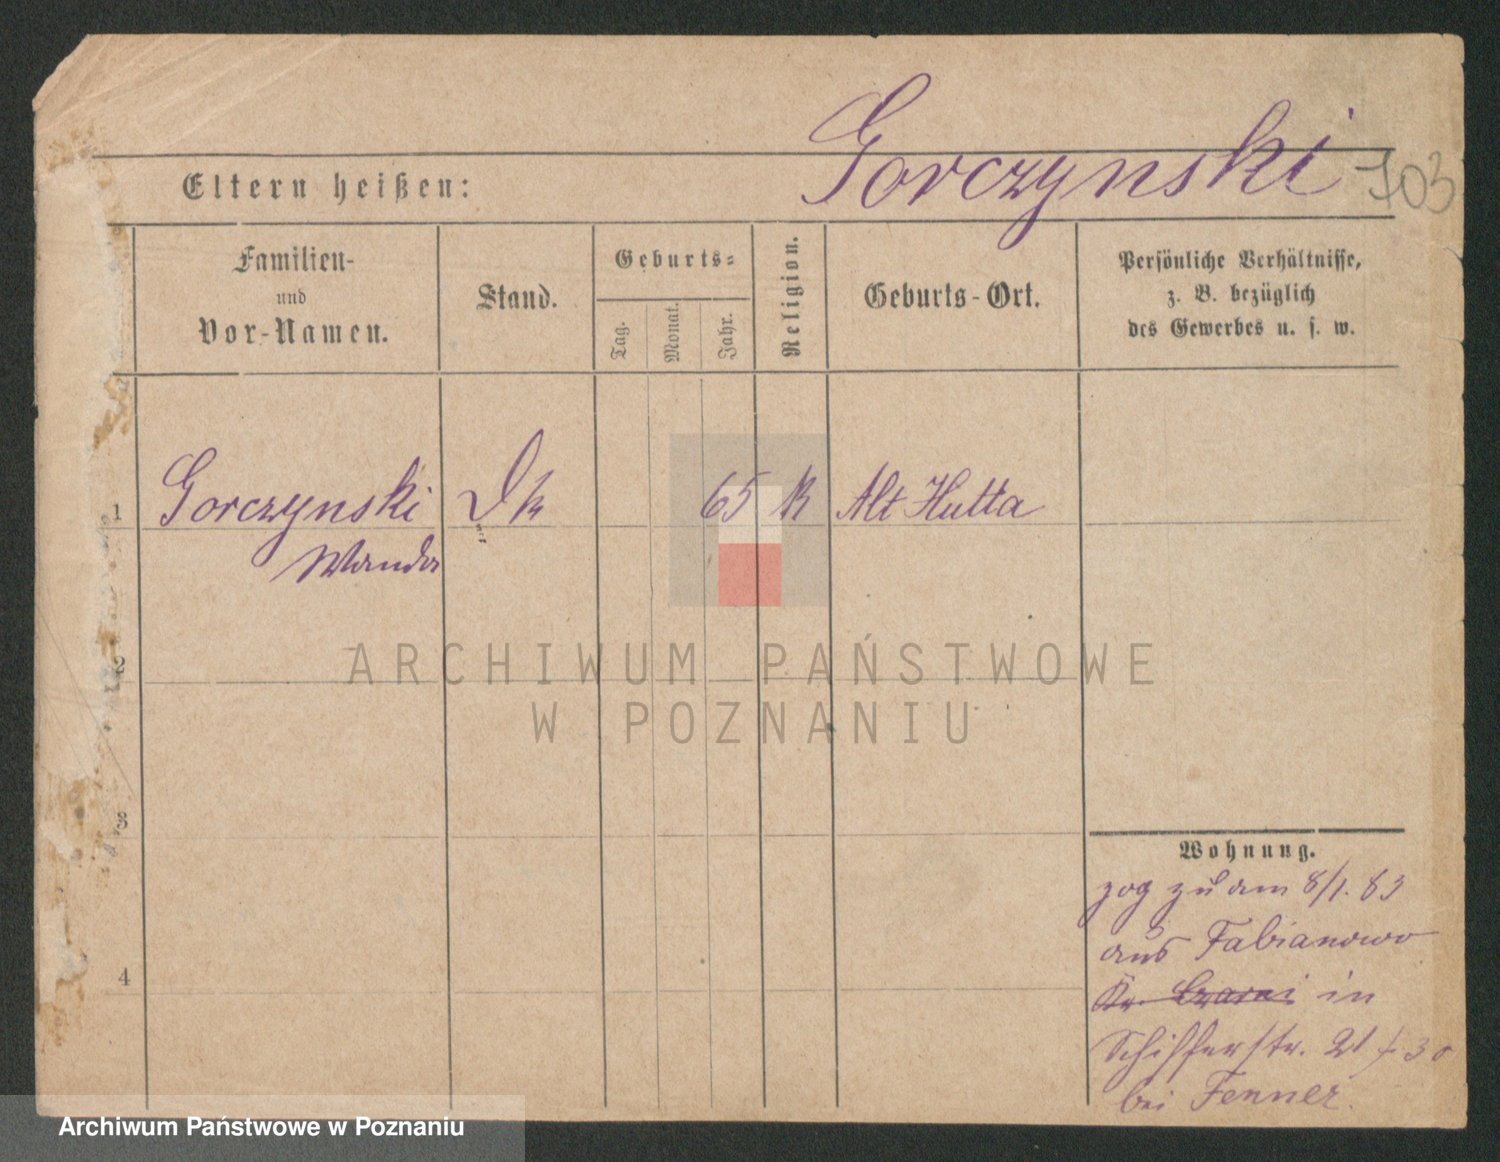 Gorczynski 703
Eltern heißen:
Familien-
und
Vor-Namen.
Stand.
Geburts-
Tag.
Monat.
Jahr.
Religion.
Geburts-Ort.
Persönliche Verhältnisse,
z. B. bezüglich
des Gewerbes u. s. w.
1 Gorczynski 65 K Alt Hutta
Wanda
2
3
4
Wohnung.
zog zu am 8/1. 83
aus Fabianowo
Kr. in
Schifferstr. 21
bei Fenner.
ARCHIWUM PAŃSTWOWE
W POZNANIU
Archiwum Państwowe w Poznaniu